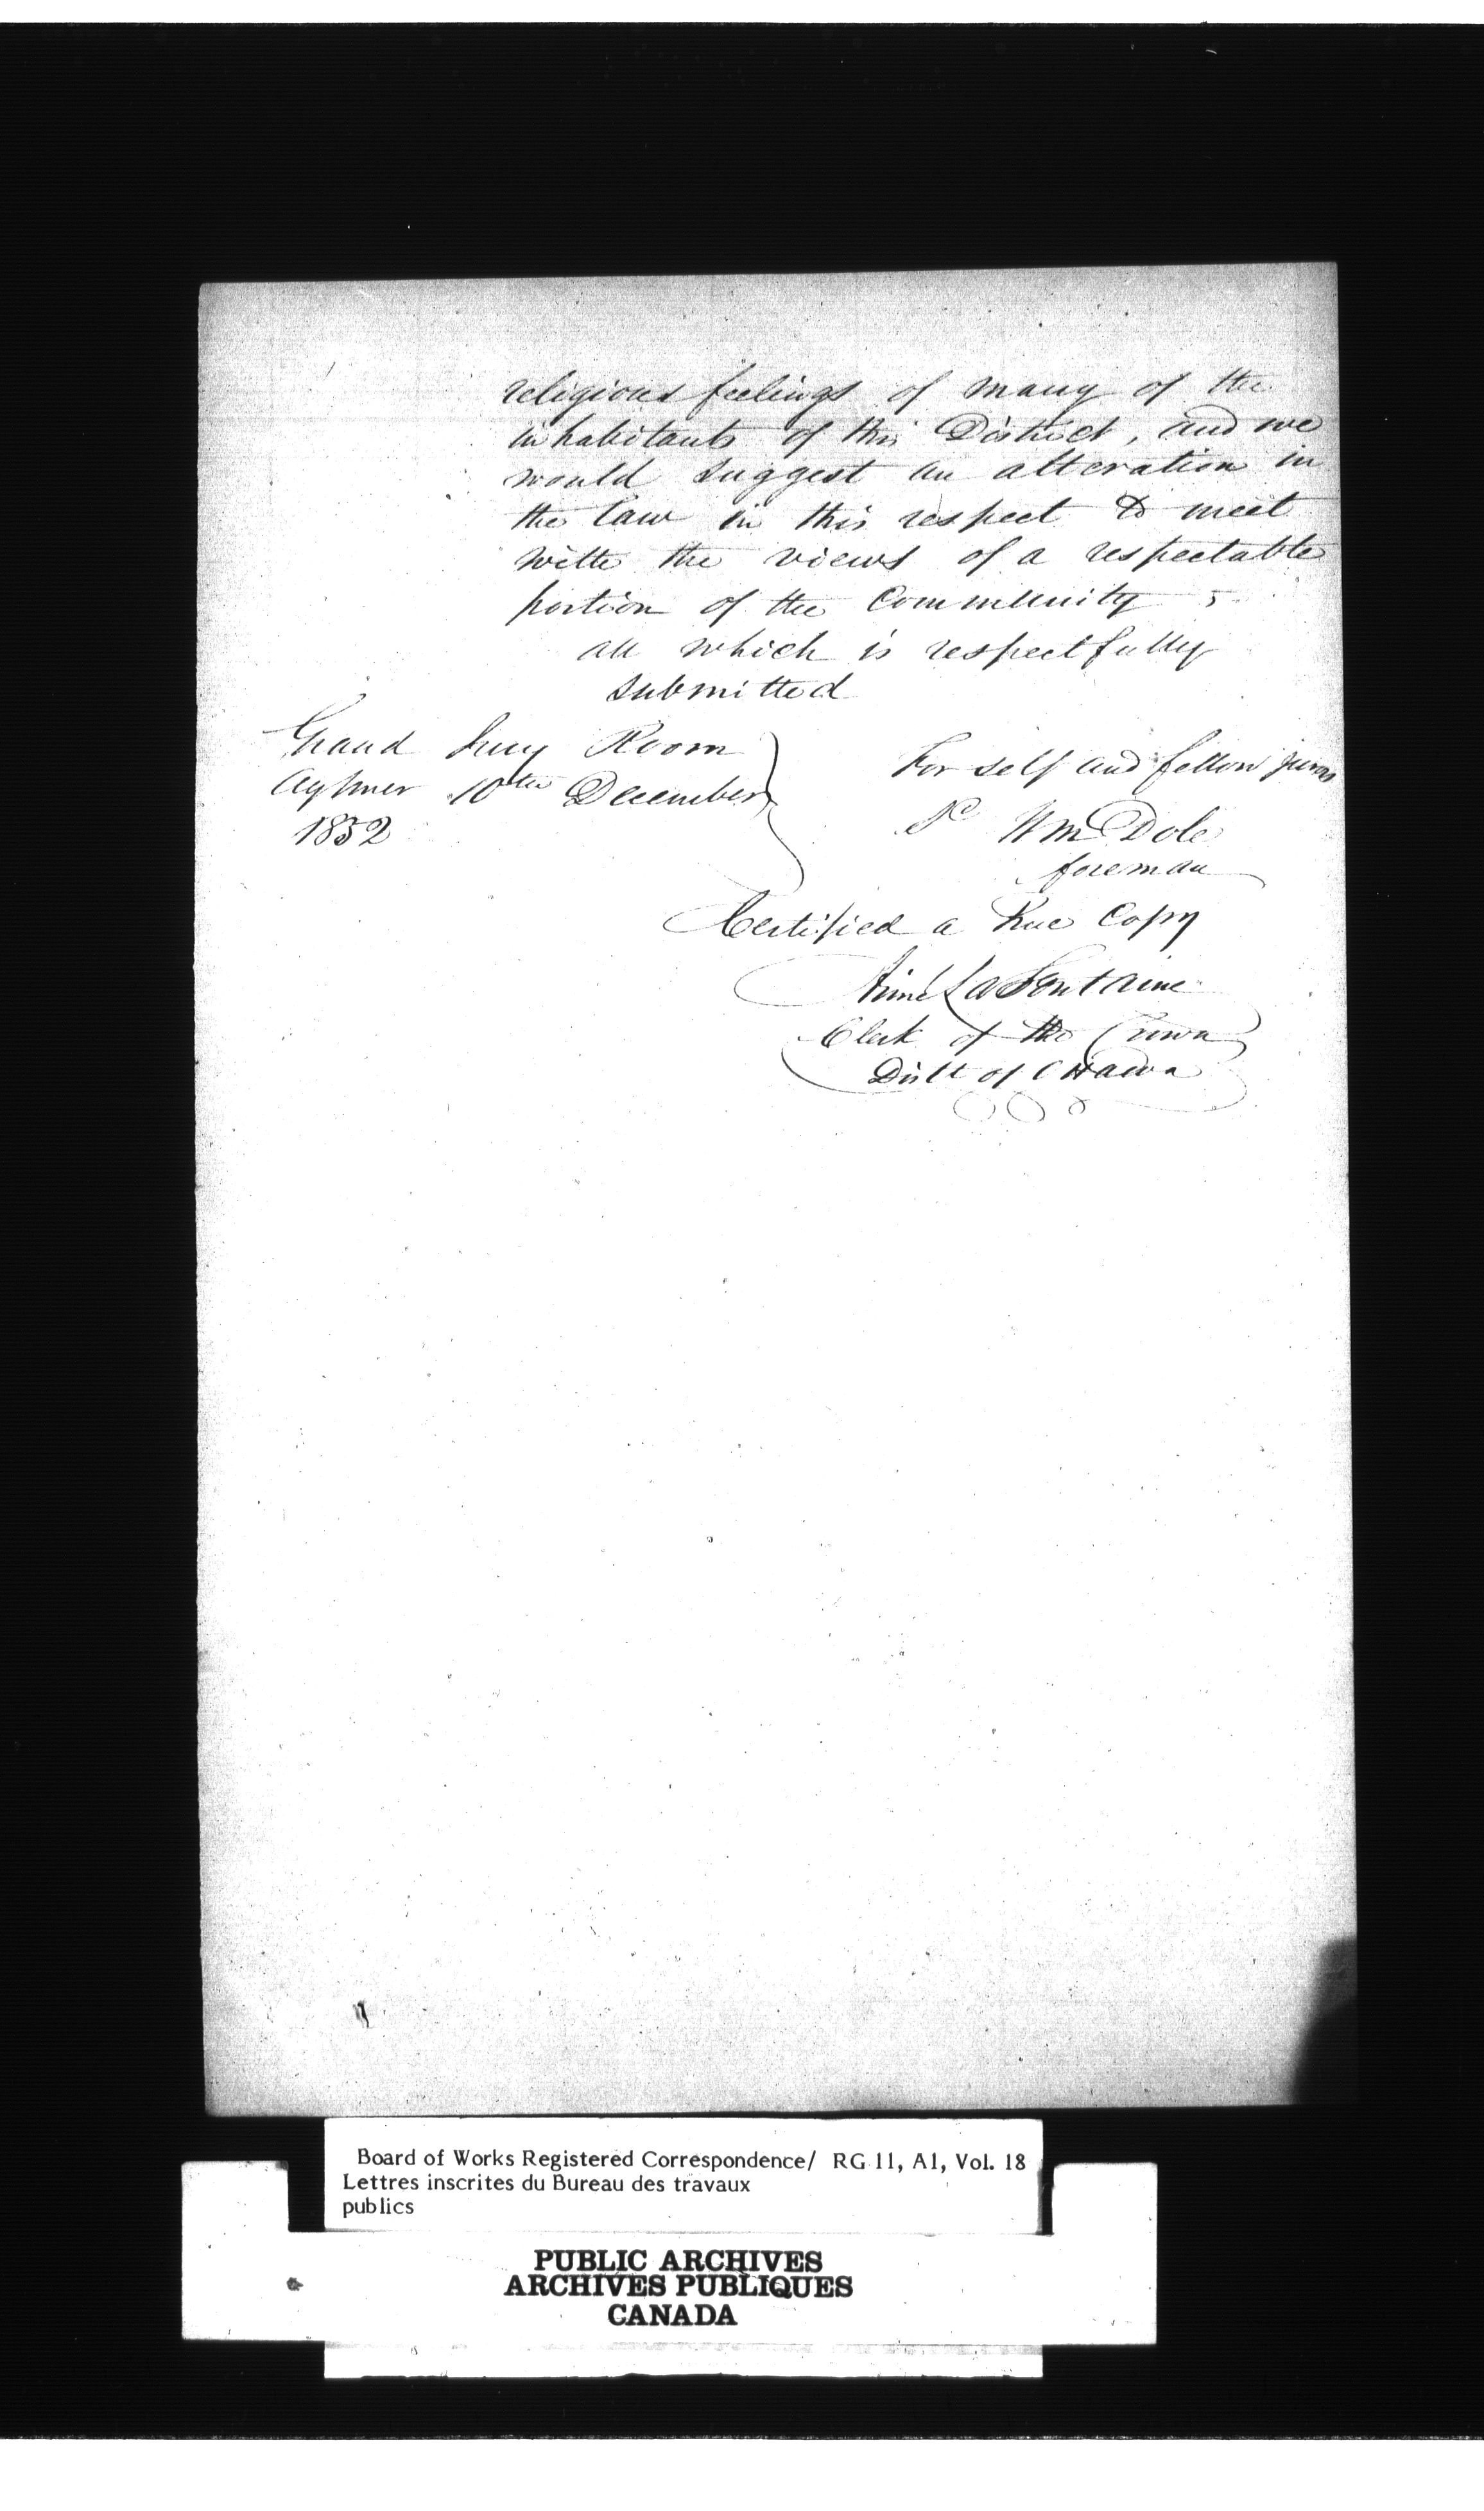 religious feelings of many of the
inhabitants of this District, and we
would suggest an alteration in
the law in this respect to meet
with the views of a respectable
portion of the Community
all which is respectfully
submitted
Grand Jury Room
Aylmer 10th December
1852
For self and fellow jurors
Wm Dole
foreman
Certified a True Copy
Aimé Lafontaine
Clerk of the Crown
Distt of Ottawa
Board of Works Registered Correspondence/ RG 11, A1, Vol. 18
Lettres inscrites du Bureau des travaux
publics
PUBLIC ARCHIVES
ARCHIVES PUBLIQUES
CANADA